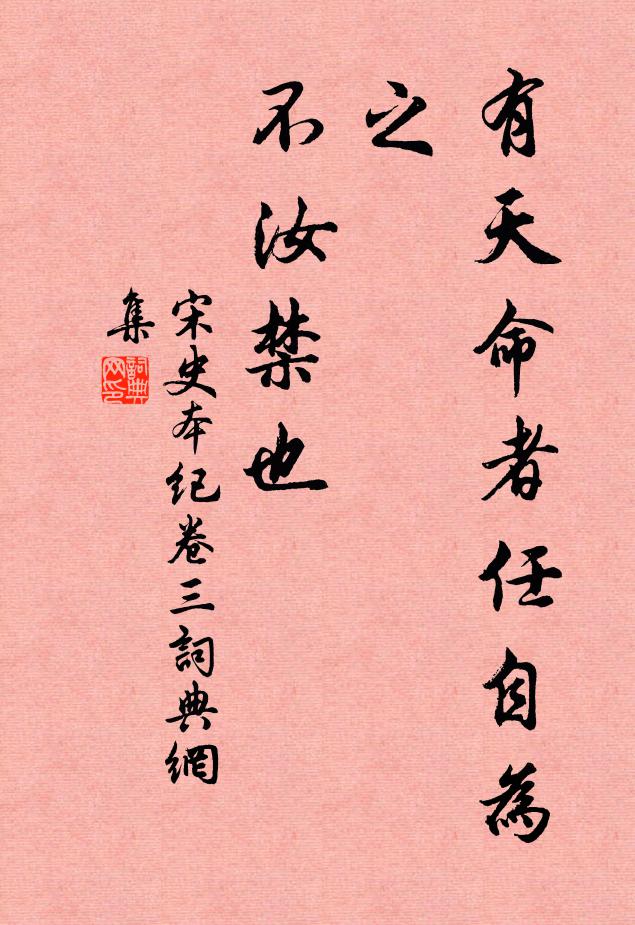 有天命者任自為
之
不汝禁也
宋史本紀卷三詞典網
集
詞典
网印